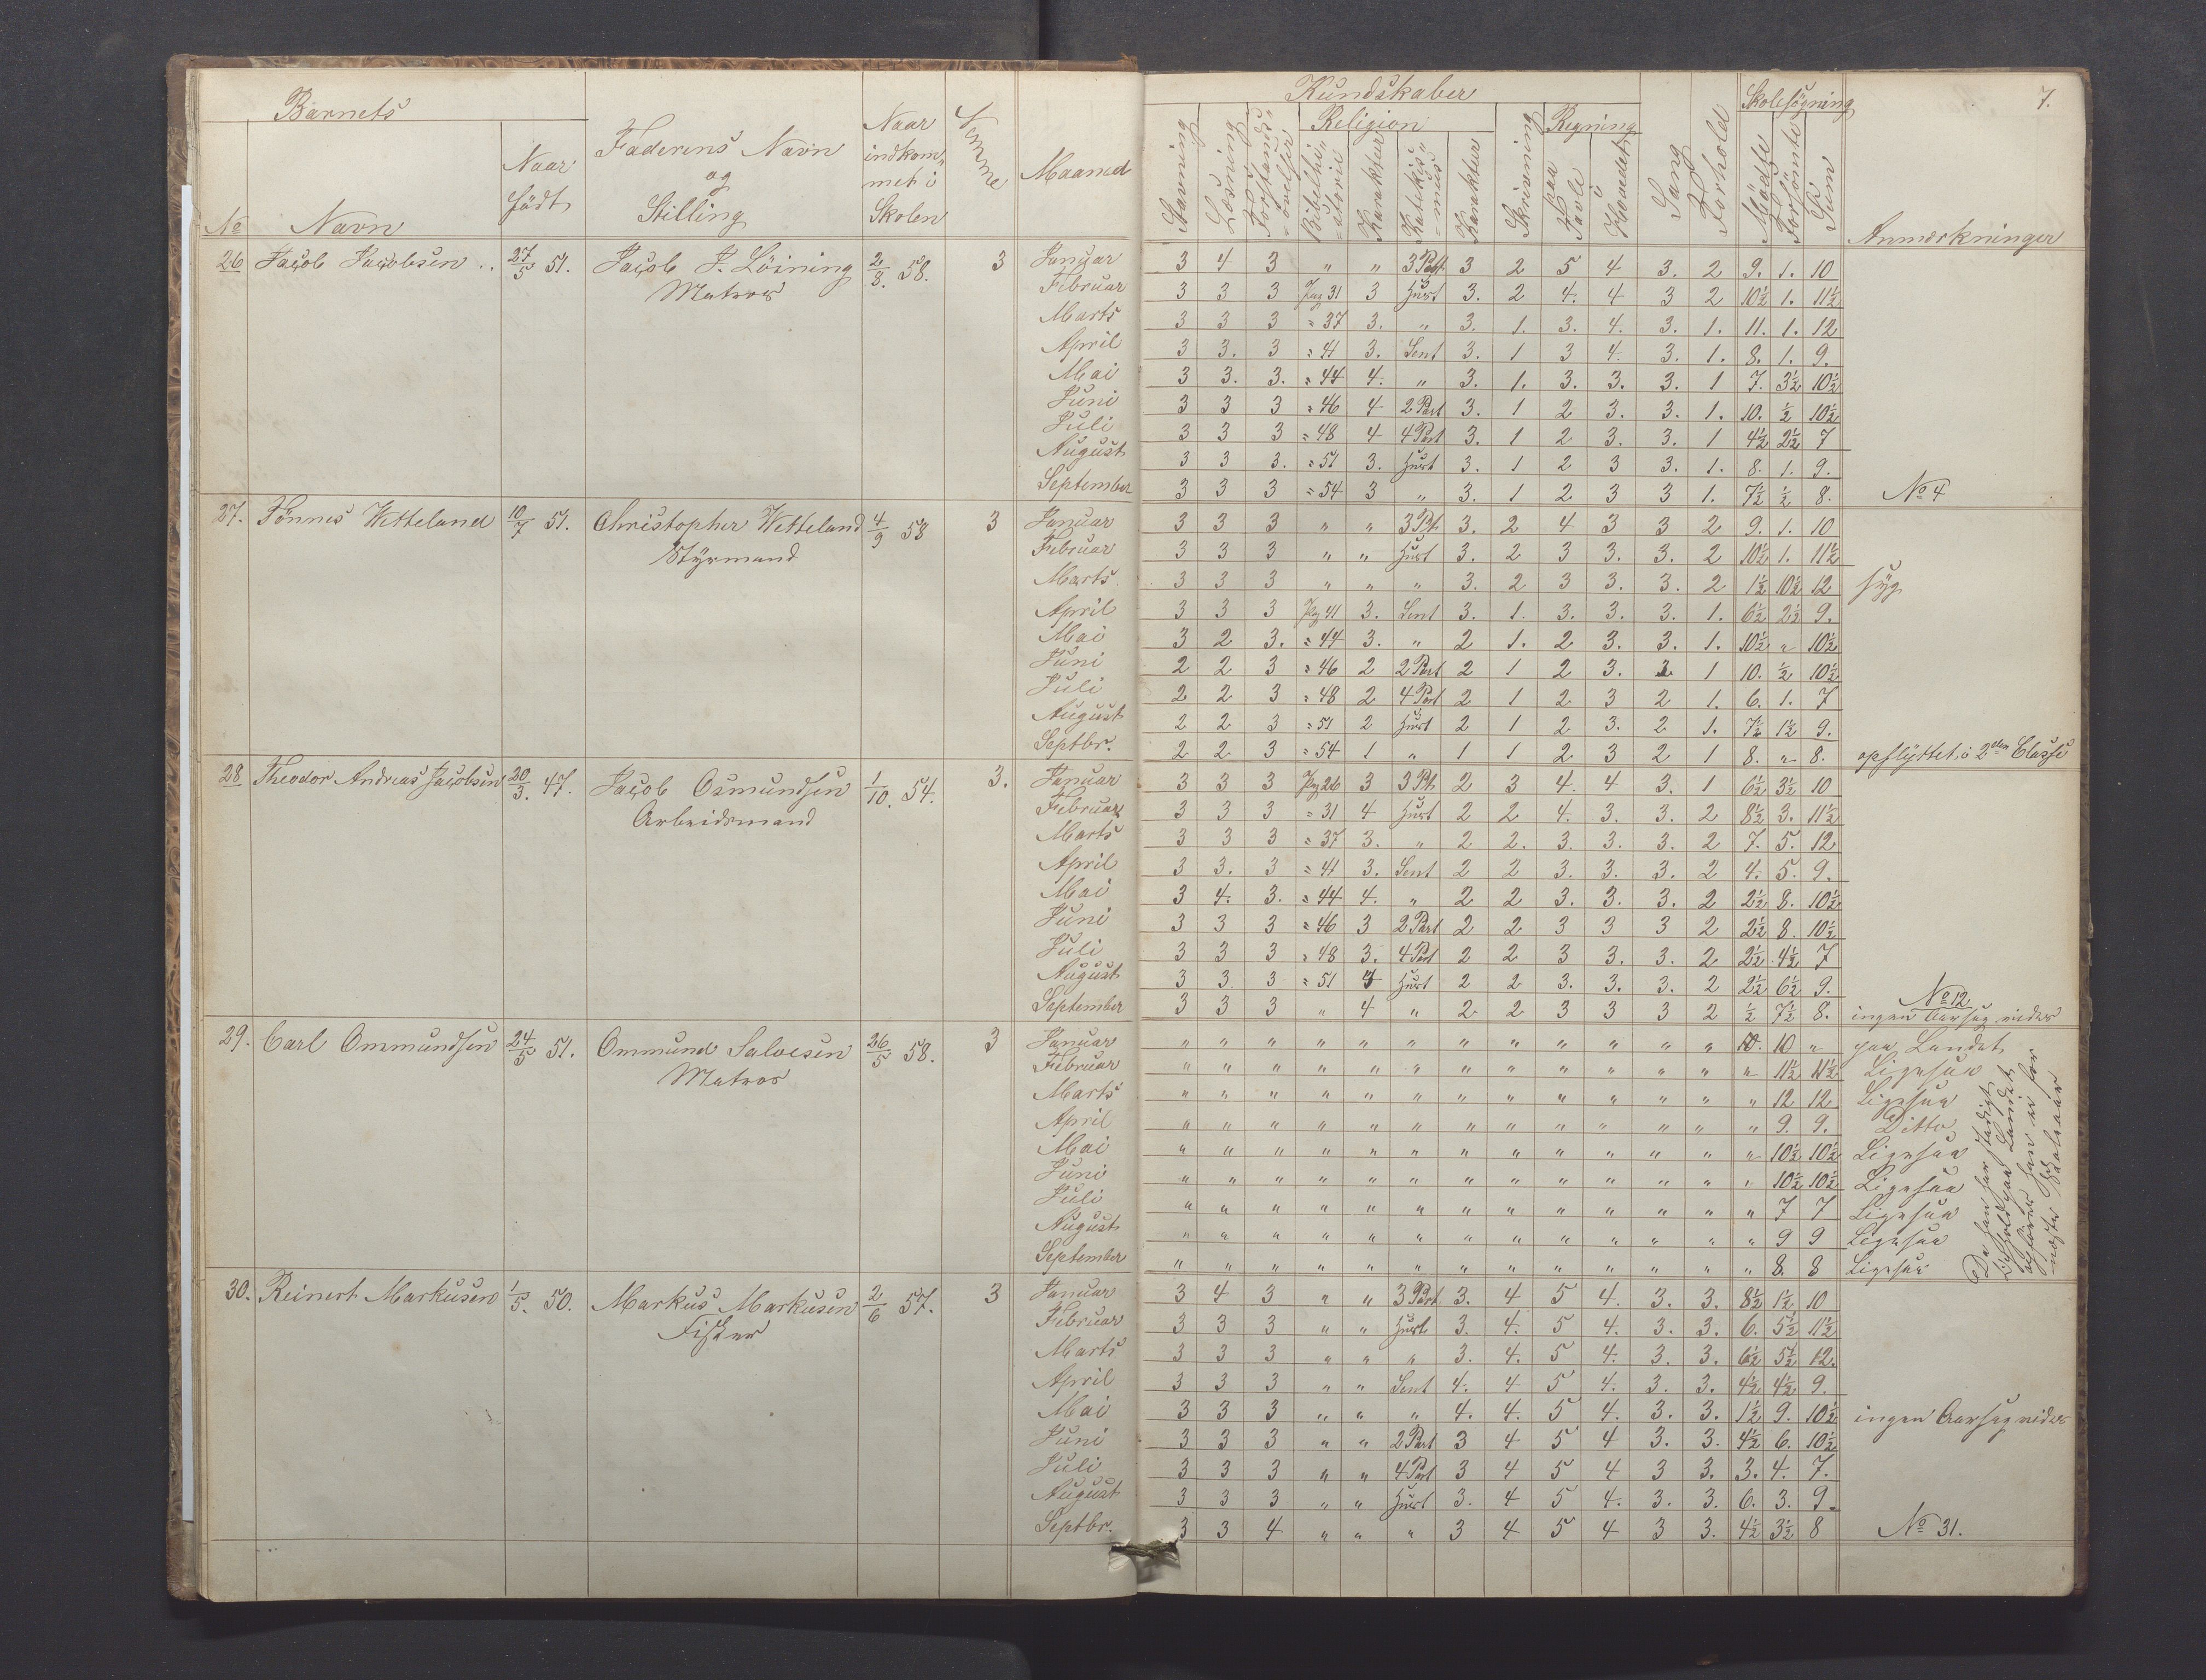 Barnets
Faderens Navn
og
Stilling
Naar
indkom„
met i
Skolen
Nemme
Maaned
No
Navn
Naar
født
Kundskaber
Skolesøgning
7.
Religion
Regning
Stavning
Læsning
Forstands„
øvelser
Bibelhi„
storie
Karakter
Katekis„
mus
Karakter
Skrivning
Paa
Tavle
i
Hovedet
Sang
Forhold
Mødte
Forsömte
Sum
Anmærkninger
26 Jacob Jacobsen .. 27/5 51. Jacob J. Löining 2/3. 58. 3 Januar 3 4 3 „ „ 3 Part 3 2 5 4 3. 2 9. 1. 10
Matros Februar 3 3 3 Pag 31 3 Hust 3. 2 4. 4 3 2 10½ 1. 11½
Marts 3 3 3 „ 37 3. „ 3. 1. 3. 4. 3. 1. 11. 1. 12
April 3 3. 3 „ 41 3. Sent 3. 1 3 4. 3. 1. 8. 1. 9.
Mai 3 3. 3. „ 44 4. „ 3. 1. 3. 3. 3. 1 7. 3½ 10½
Juni 3 3 3 „ 46 4 2 Part 3. 1 2 3. 3. 1. 10. ½ 10½
Juli 3 3 3 „ 48 4 4 Part 3. 1 2 3. 3. 1 4½ 2½ 7
August 3 3 3. „ 51 3. Hust 3. 1 2 3 3. 1. 8. 1. 9.
September 3 3 3 „ 54 3 „ 3. 1 2 3 3 1. 7½ ½ 8. No 4
27. Tönnes Wetteland 10/7 51. Christopher Wetteland 4/9 58 3 Januar 3 3 3 „ „ 3 Pt 3. 2 4 3 3 2 9. 1. 10
Styrmand Februar 3 3 3 „ „ Hust 3. 2 3 3. 3. 2 10½ 1. 11½
Marts 3 3 3 „ „ „ 3. 2 3 3. 3. 2 1½ 10½ 12 syg
April 3 3 3 Pag 41 3. Sent 3. 1. 3. 3. 3. 1. 6½ 2½ 9.
Mai 3 2 3. „ 44 3. „ 2 1. 2 3. 3. 1. 10½ „ 10½
Juni 2 2 3 „ 46 2 2 Part 2 1 2 3. 3 1 10. ½ 10½
Juli 2 2 3 „ 48 2 4 Part 2 1 2 3 2 1. 6. 1. 7
August 2 2 3 „ 51 2 Hust 2 1 2 3. 2 1. 7½ 1½ 9.
Septbr. 2 2 3 „ 54 1 „ 1 1 2 3 2 1 8. „ 8. opflyttet i 2den Classe
28 Theodor Andreas Jacobsen 20/3. 47. Jacob Osmundsen 1/10. 54. 3. Januar 3 3 3 Pag 26 3 3 Pt. 2 3 4. 4 3. 1 6½ 3½ 10
Arbeidsmand Februar 3 3 3 „ 31 4 Hust 2 2 4. 3. 3. 2 8½ 3. 11½
Marts 3 3 3 „ 37 3. „ 2 2. 3. 3. 3. 2 7. 5. 12
April 3 3. 3 „ 41 3. Sent 2 2 3. 3. 3. 2 4. 5. 9.
Mai 3 4. 3. „ 44 4. „ 2 2 3. 3. 3. 2 2½ 8. 10½
Juni 3 3 3 „ 46 3 2 Part 2 2 3 3 3 2 2½ 8. 10½
Juli 3 3 3 „ 48 3. 4 Part 2 2 3 3. 3. 2 2½ 4½ 7
August 3 3 3 „ 51 4 Hust 2 2 3. 3. 3. 2 2½ 6½ 9. No 12
September 3 3 3 „ 4 „ 2 2 3 3 3 2 ½ 7½ 8. ingen Aarsag vides
29. Carl Ommundsen 24/5 51. Ommund Salvesen 26/5 58. 3 Januar „ „ „ „ „ „ „ „ „ „ „ „ 10. 10 „ paa Landet
Matros Februar „ „ „ „ „ „ „ „ „ „ „ „ „ 11½ 11½ Ligesaa
Marts „ „ „ „ „ „ „ „ „ „ „ „ „ 12 12 Ligesaa
April „ „ „ „ „ „ „ „ „ „ „ „ „ 9. 9. Ditto
Mai „ „ „ „ „ „ „ „ „ „ „ „ „ 10½ 10½ Ligesaa
Juni „ „ „ „ „ „ „ „ „ „ „ „ „ 10½ 10½ Ligesaa
Juli „ „ „ „ „ „ „ „ „ „ „ „ „ 7 7 Ligesaa
August „ „ „ „ „ „ „ „ „ „ „ „ „ 9 9 Ligesaa
September „ „ „ „ „ „ „ „ „ „ „ „ „ 8. 8 Ligesaa
Da han har stadigt
Ophold paa Landet
opføres han ei for
næste Skoleaar
30. Reinert Markusen 1/5. 50. Markus Markusen 2/6 57. 3 Januar 3 4 3 „ „ 3 Part 3. 4 5 4. 3. 3. 8½ 1½ 10
Fisker Februar 3 3 3 „ „ Hust 3. 4. 5 4. 3. 3. 6. 5½ 11½
Marts 3 3 3 „ „ „ 3. 4. 5 4. 3. 3. 6½ 5½ 12.
April 3 3 3 „ „ Sent 4. 4 5 4. 3. 3. 4½ 4½ 9.
Mai 3 3 3 „ „ „ 4. 4. 5 4. 3. 3. 1½ 9. 10½ ingen Aarsag vides
Juni 3 3 3 „ „ 2 Part 3 4 5 4 3. 3. 4½ 6. 10½
Juli 3 3 3 „ „ 4 Part 3 4 5 4 3 3. 3. 4. 7.
August 3 3 3 „ „ Hust 3. 4 5 4. 3. 3. 6. 3. 9.
Septbr. 3 3 4 „ „ „ 3 4 5 4 3 3. 4½ 3½ 8 No 31.